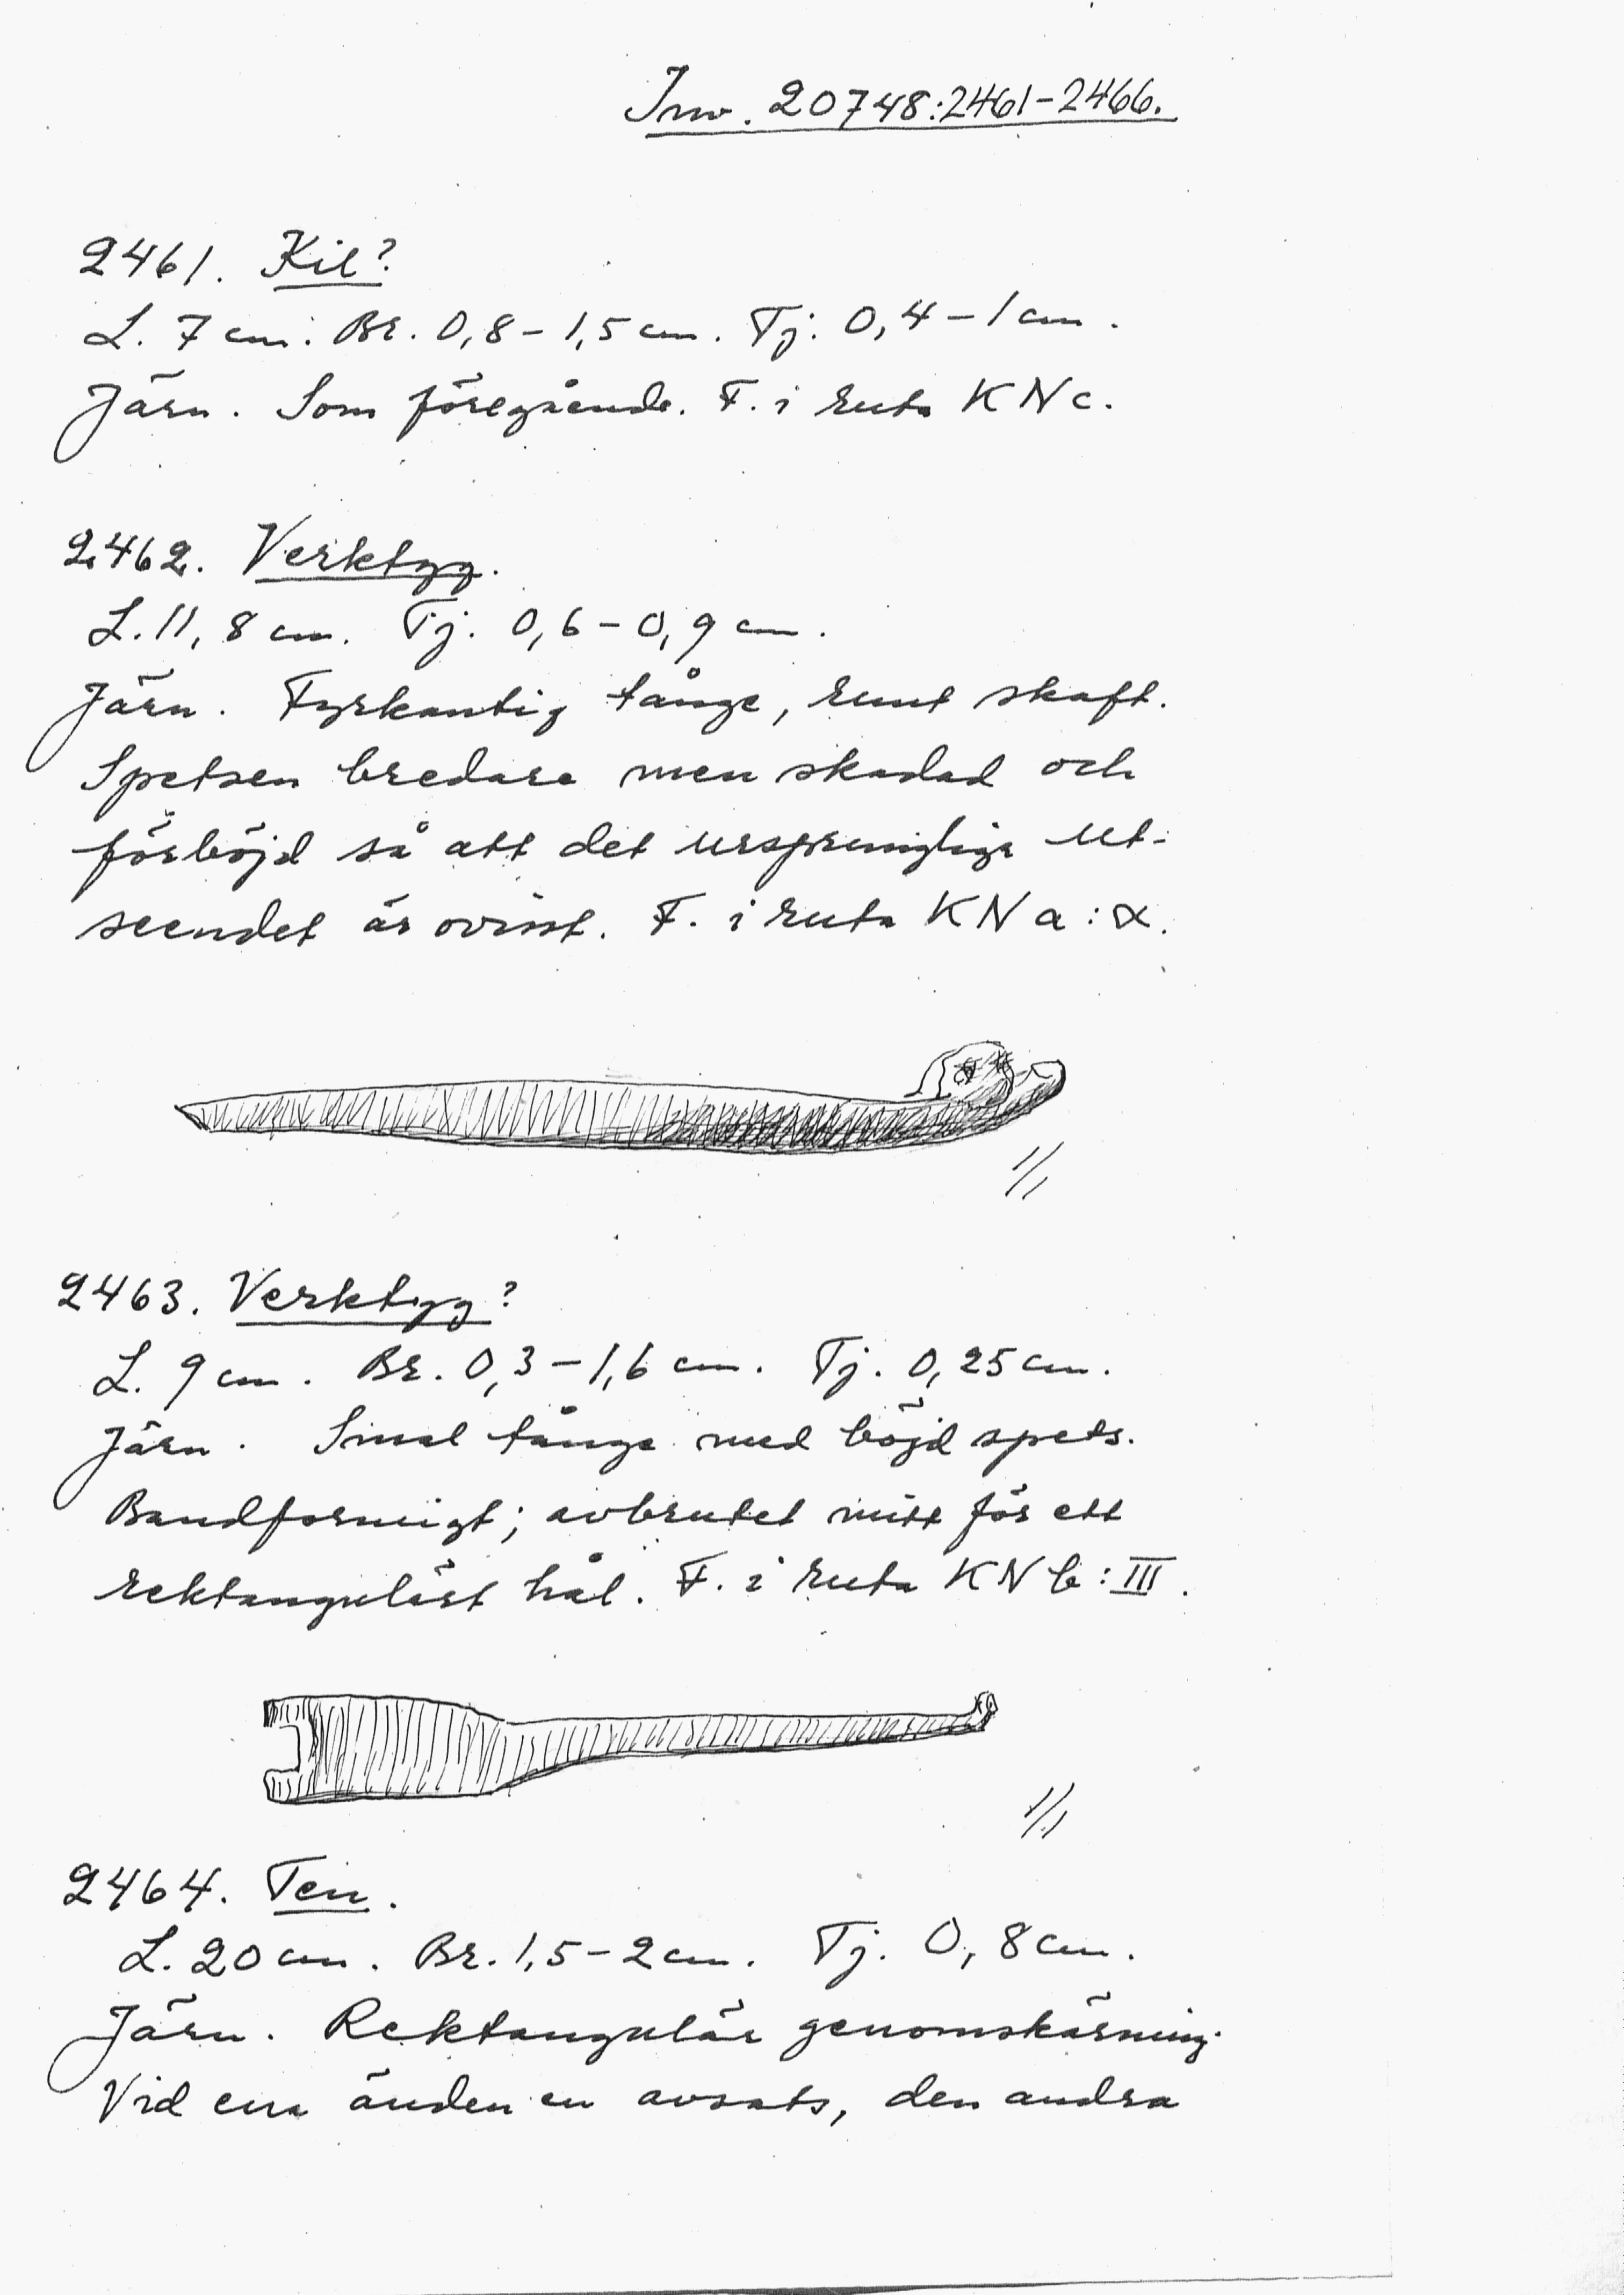 Inv. 20748:2461-2466.
2461. Kil?
L. 7 cm. Br. 0,8-1,5 cm. Tj. 0,4-1 cm.
Järn. Som föregående. F. i ruta KNc.
2462. Verktyg.
L. 11,8 cm. Tj. 0,6-0,9 cm.
Järn. Fyrkantig tånge, runt skaft.
Spetsen bredare men skadad och
förböjd så att det ursprungliga ut-
seendet är ovisst. F. i ruta KN a:α.
1/1
2463. Verktyg?
L. 9 cm. Br. 0,3-1,6 cm. Tj. 0,25 cm.
Järn. Smal tånge med böjd spets.
Bandformigt; avbrutet mitt för ett
rektangulärt hål. F. i ruta KN b:III.
1/1
2464. Ten.
L. 20 cm. Br. 1,5-2 cm. Tj. 0,8 cm.
Järn. Rektangulär genomskärning.
Vid ena änden en avsats, den andra